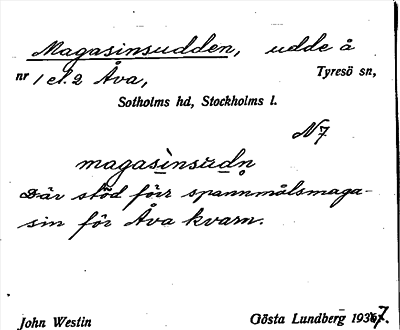 Magasinsudden, udde å
nr 1 el. 2 Åva, Tyresö sn,
Sotholms hd, Stockholms l.
N7
magasìnsu̱dṇ
Där stod förr spannmålsmaga-
sin för Åva kvarn.
John Westin Gösta Lundberg 1937.